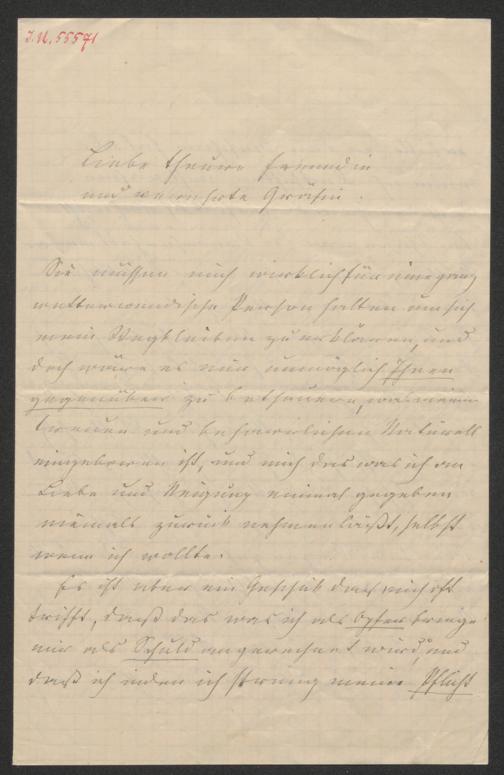 I.N. 55571
Liebe theuere Freundin
und verehrte Gräfin.
Sie müssen mich wirklich für eine ganz
wetterwendische Person halten um sich
mein Wegbleiben zu erklären, und
doch wäre es mir unmöglich Ihnen
gegenüber zu betheuern, was meinem
treuen und beharrlichen Naturell
eingeboren ist, und mich das was ich an
Liebe und Neigung einmal gegeben
niemals zurück nehmen läßt, selbst
wenn ich wollte.
Es ist aber ein Geschick das mich oft
trifft, daß das was ich als Opfer bringe
mir als Schuld angerechnet wird, und
daß ich indem ich streng meine Pflicht